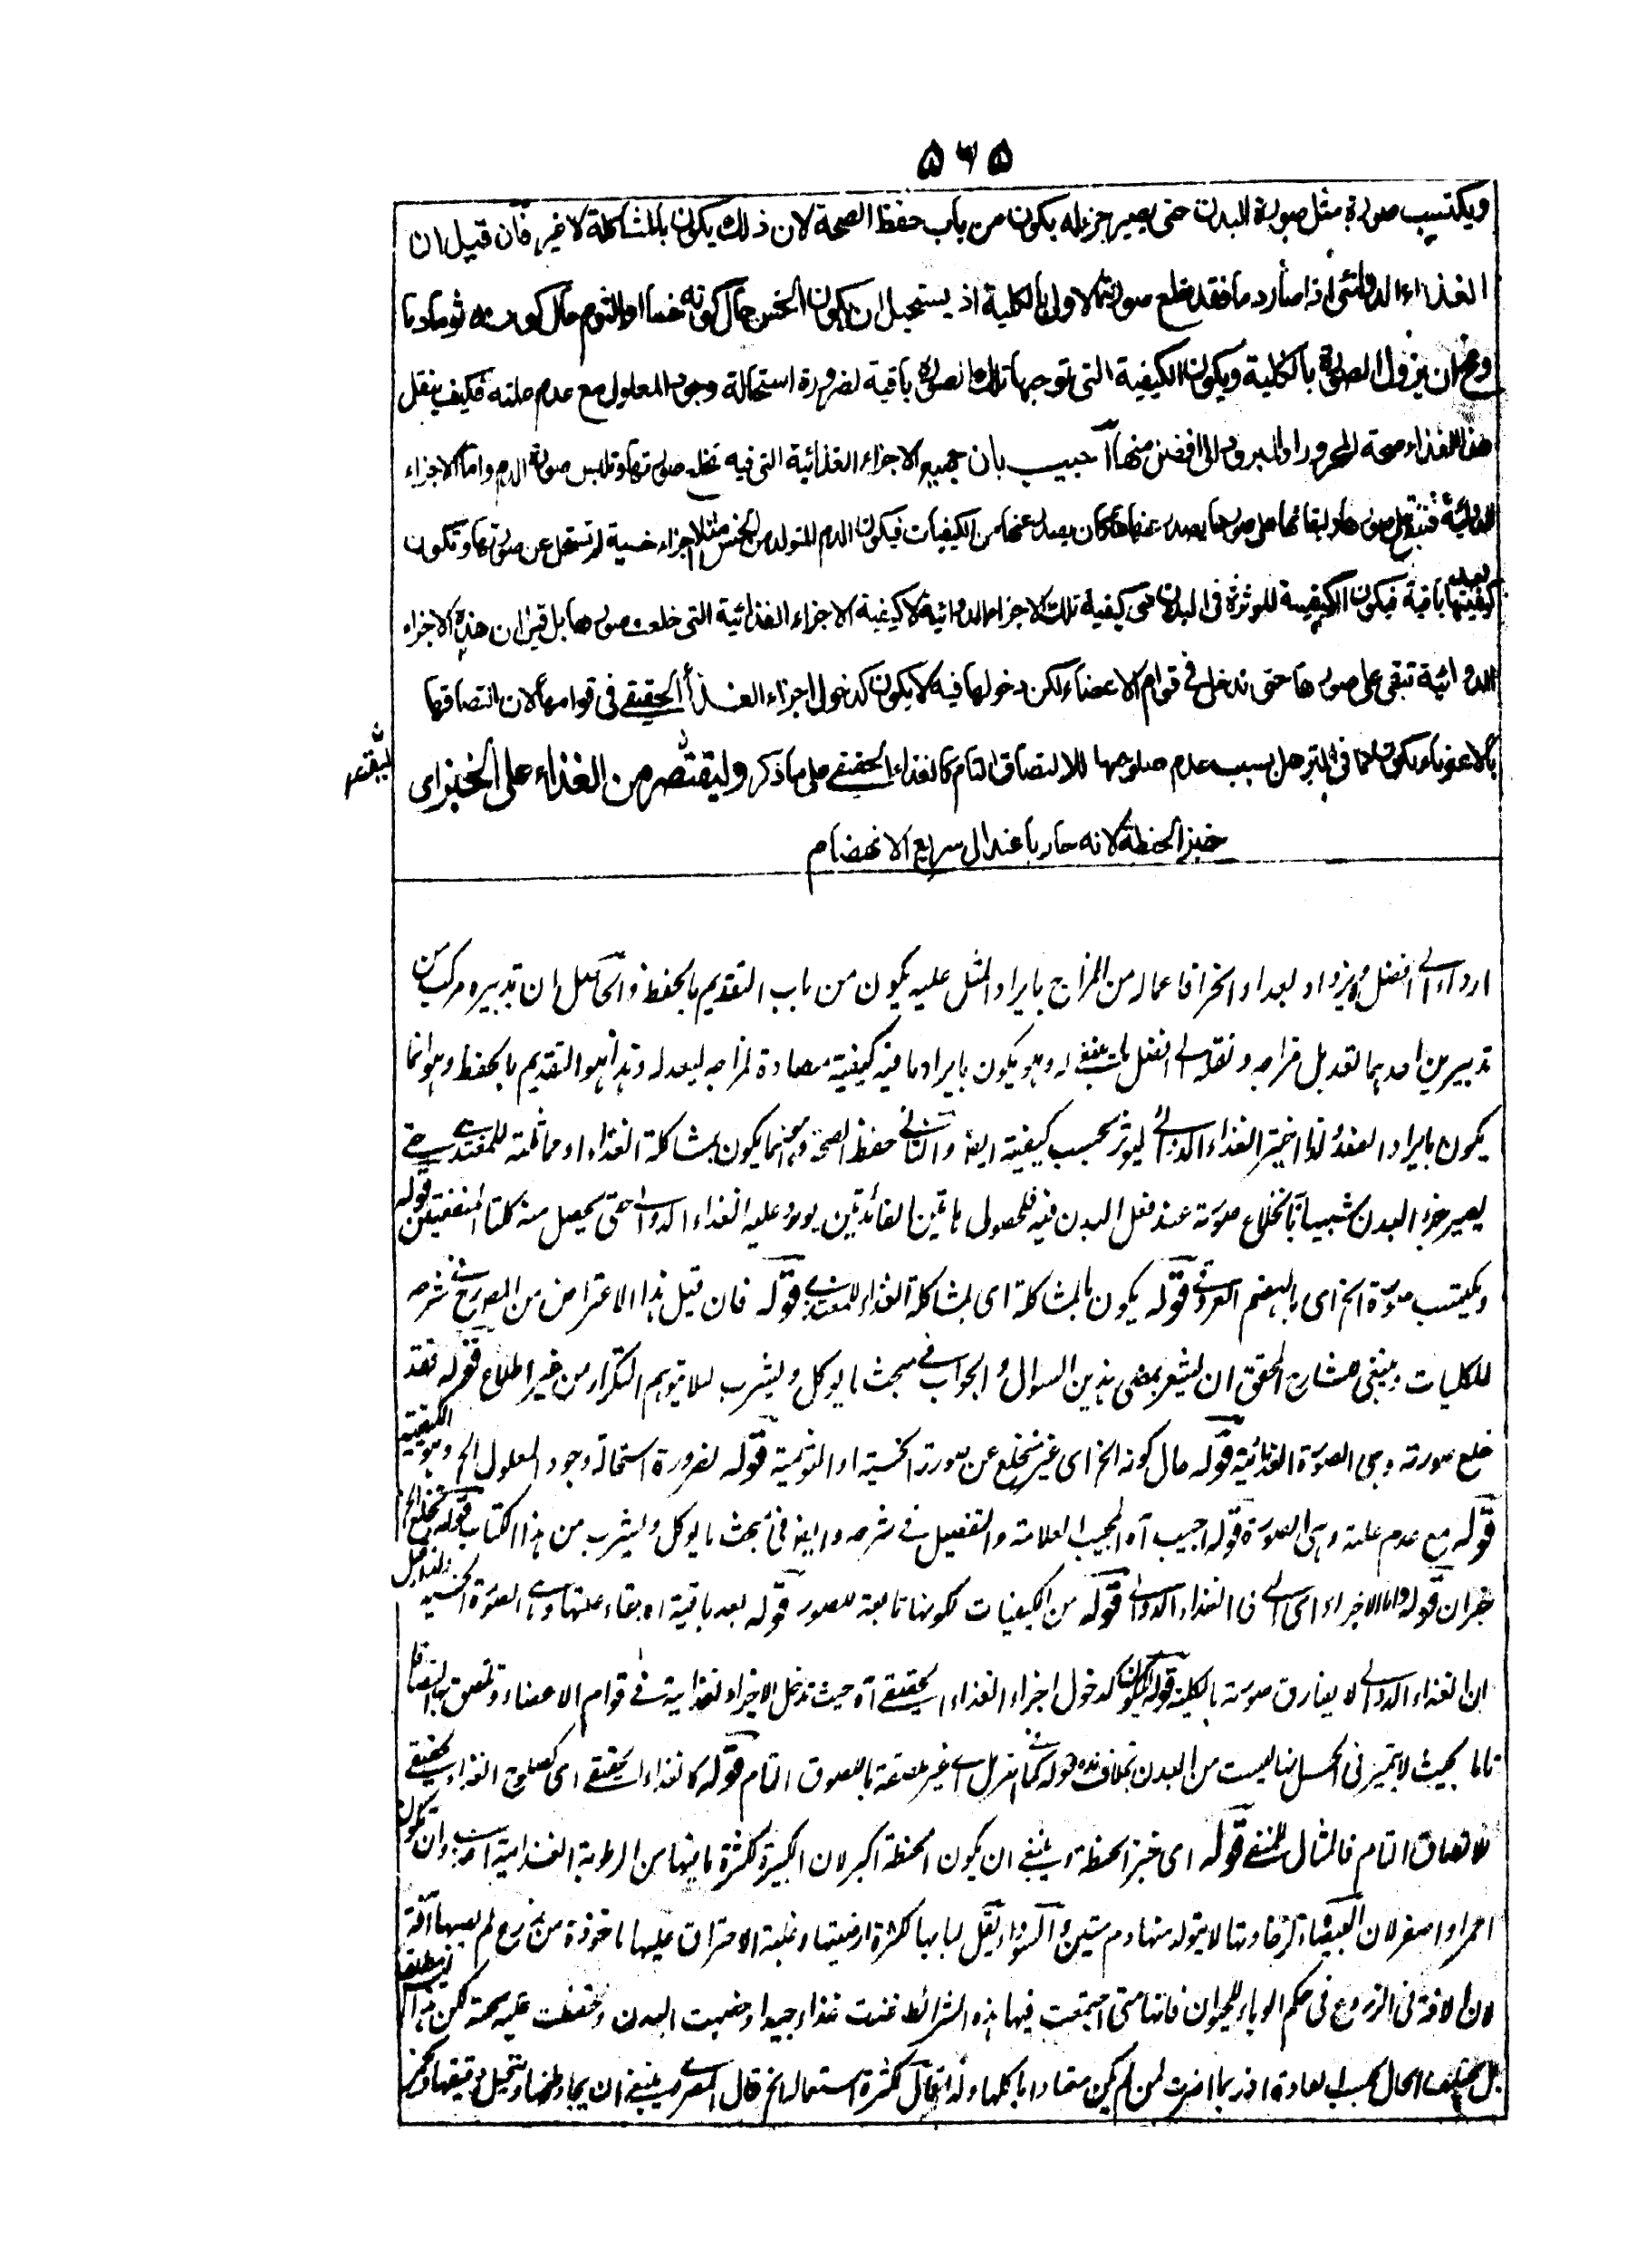 ۵۶۵
ويكتسب صورة مثل صورة البدن حتى يصير جزء له يكون من باب حفظ الصحة لان ذلك يكون بالمشاكلة لا غير فان قيل ان
الغذاء الدوائى اذا صار دما فقد خلع صورته الاولى بالكلية اذ يستحيل ان يكون الخس حال كونه خسا او الثوم حال كونه ثوما دما
ومح ان يزول الصورة بالكلية ويكون الكيفية التى توجبها تلك الصورة باقية لضرورة استحالة وجود المعلول مع عدم علته فكيف ينقل
هذا الغذاء صحة المحرور او المبرود الى افضل منها اجيب بان جميع الاجزاء الغذائية التى فيه تخلع صورتها وتلبس صورة الدم واما الاجزاء
الدوائية فتبقى على صورها ولبقائها على صورها يصدر عنها ما كان يصدر عنها من الكيفيات فيكون الدم المتولد من الخس مثلا اجزاء خسية لم تستحل عن صورتها وتكون
كيفيتها بعد باقية فيكون الكيفية المؤثرة فى البدن هى كيفية تلك الاجزاء الدوائية لا كيفية الاجزاء الغذائية التى خلعت صورها بل قيل ان هذه الاجزاء
الدوائية تبقى على صورها حتى تدخل فى قوام الاعضاء لكن دخولها فيه لا يكون كدخول اجزاء الغذاء الحقيقى فى قوامها لان التصاقها
بالاعضاء يكون كما فى الترهل بسبب عدم صلوحها للالتصاق التام كالغذاء الحقيقى على ما ذكر وليقتصر من الغذاء على الخبز اى
خبز الحنطة لانه حار باعتدال سريع الانهضام
ارداء الى افضل يزداد بعدا وانحرافا عماله من المزاج بايراد المثل عليه يكون من باب التقديم بالحفظ والحاصل ان تدبيره مركب من
تدبيرين احدهما تعديل مزاجه ونقله الى افضل وهو يكون بايراد ما فيه كيفية مضادة لمزاجه ليعدله وهذا هو التقديم بالحفظ وهو انما
يكون بايراد الضد لذا اختير الغذاء الدوائى ليؤثر بحسب كيفية ايضا والثانى حفظ الصحة وهو انما يكون بمشاكلة الغذاء او مماثلته للمغتذى حتى
يصير جزء البدن شبيها بانخلاع صورته عند فعل البدن فيه فلحصول هاتين الفائدتين يورد عليه الغذاء الدوائى حتى يحصل منه كلتا المنفعتين قوله
ويكتسب صورة الخ اى بالهضم العروقى قوله يكون بالمشاكلة اى بمشاكلة الغذاء للمغتذى قوله فان قيل هذا الاعتراض من المصرح فى شرحه
للكليات وينبغى للشارح المحقق ان يشير بمضى هذين السوال والجواب فى مبحث ما يوكل ويشرب لئلا يتوهم التكرار من غير اطلاع قوله فقد
خلع صورته وهى الصورة الغذائية قوله حال كونه الخ اى غير منخلع عن صورته الخسية او الثومية قوله لضرورة استحالة وجود المعلول الخ وهو الكيفية
قوله مع عدم علته وهى الصورة قوله اجيب آه المجيب العلامة والتفصيل فى شرحه وايضا فى بحث ما يوكل ويشرب من هذا الكتاب قوله تخلع الخ
خبر ان قوله واما الاجزاء اى التى فى الغذاء الدوائى قوله من الكيفيات لكونها تابعة للصور قوله بعد باقية اه بقاء علتها وهى الصورة الخسية
ان الغذاء الدوائى لا يفارق صورته بالكلية قوله لا يكون كدخول اجزاء الغذاء الحقيقى آه حيث تدخل الاجزاء الغذائية فى قوام الاعضاء وتلصق بها التصاقا
تاما بحيث لا يتميز فى الحس انها ليست من البدن بخلاف هذه قوله كما فى الترهل اى غير ملصقة باللصوق التام قوله كالغذاء الحقيقى اى كصلوح الغذاء الحقيقى
للالتصاق التام فالمثال للمنفى قوله اى خبز الحنطة وينبغى ان يكون الحنطة اكبر لان الكبيرة لكثرة ما فيها من الرطوبة الغذائية انسب وان تكون
احمر او اصفر لان البيضاء لرخاوتها لا يتولد منها دم متين والسوداء يقل لبابها لكثرة ارضيتها وغلبة الاحتراق عليها ماخوذة من زرع لم يصبها آفة
لان الآفة فى الزروع فى حكم الوباء للحيوان فانها متى اجتمعت فيها هذه الشرائط غذت غذاء جيدا وخصبت البدن وحفظت عليه صحته لكن هذا ليس مطلقا
بل يختلف الحال بحسب العادة اذ ربما اضرت لمن لم يكن معتادا باكلها ولذا قال كثرة استعماله الخ قال المصرح ينبغى ان يجاد طحنها وتنخيل دقيقها